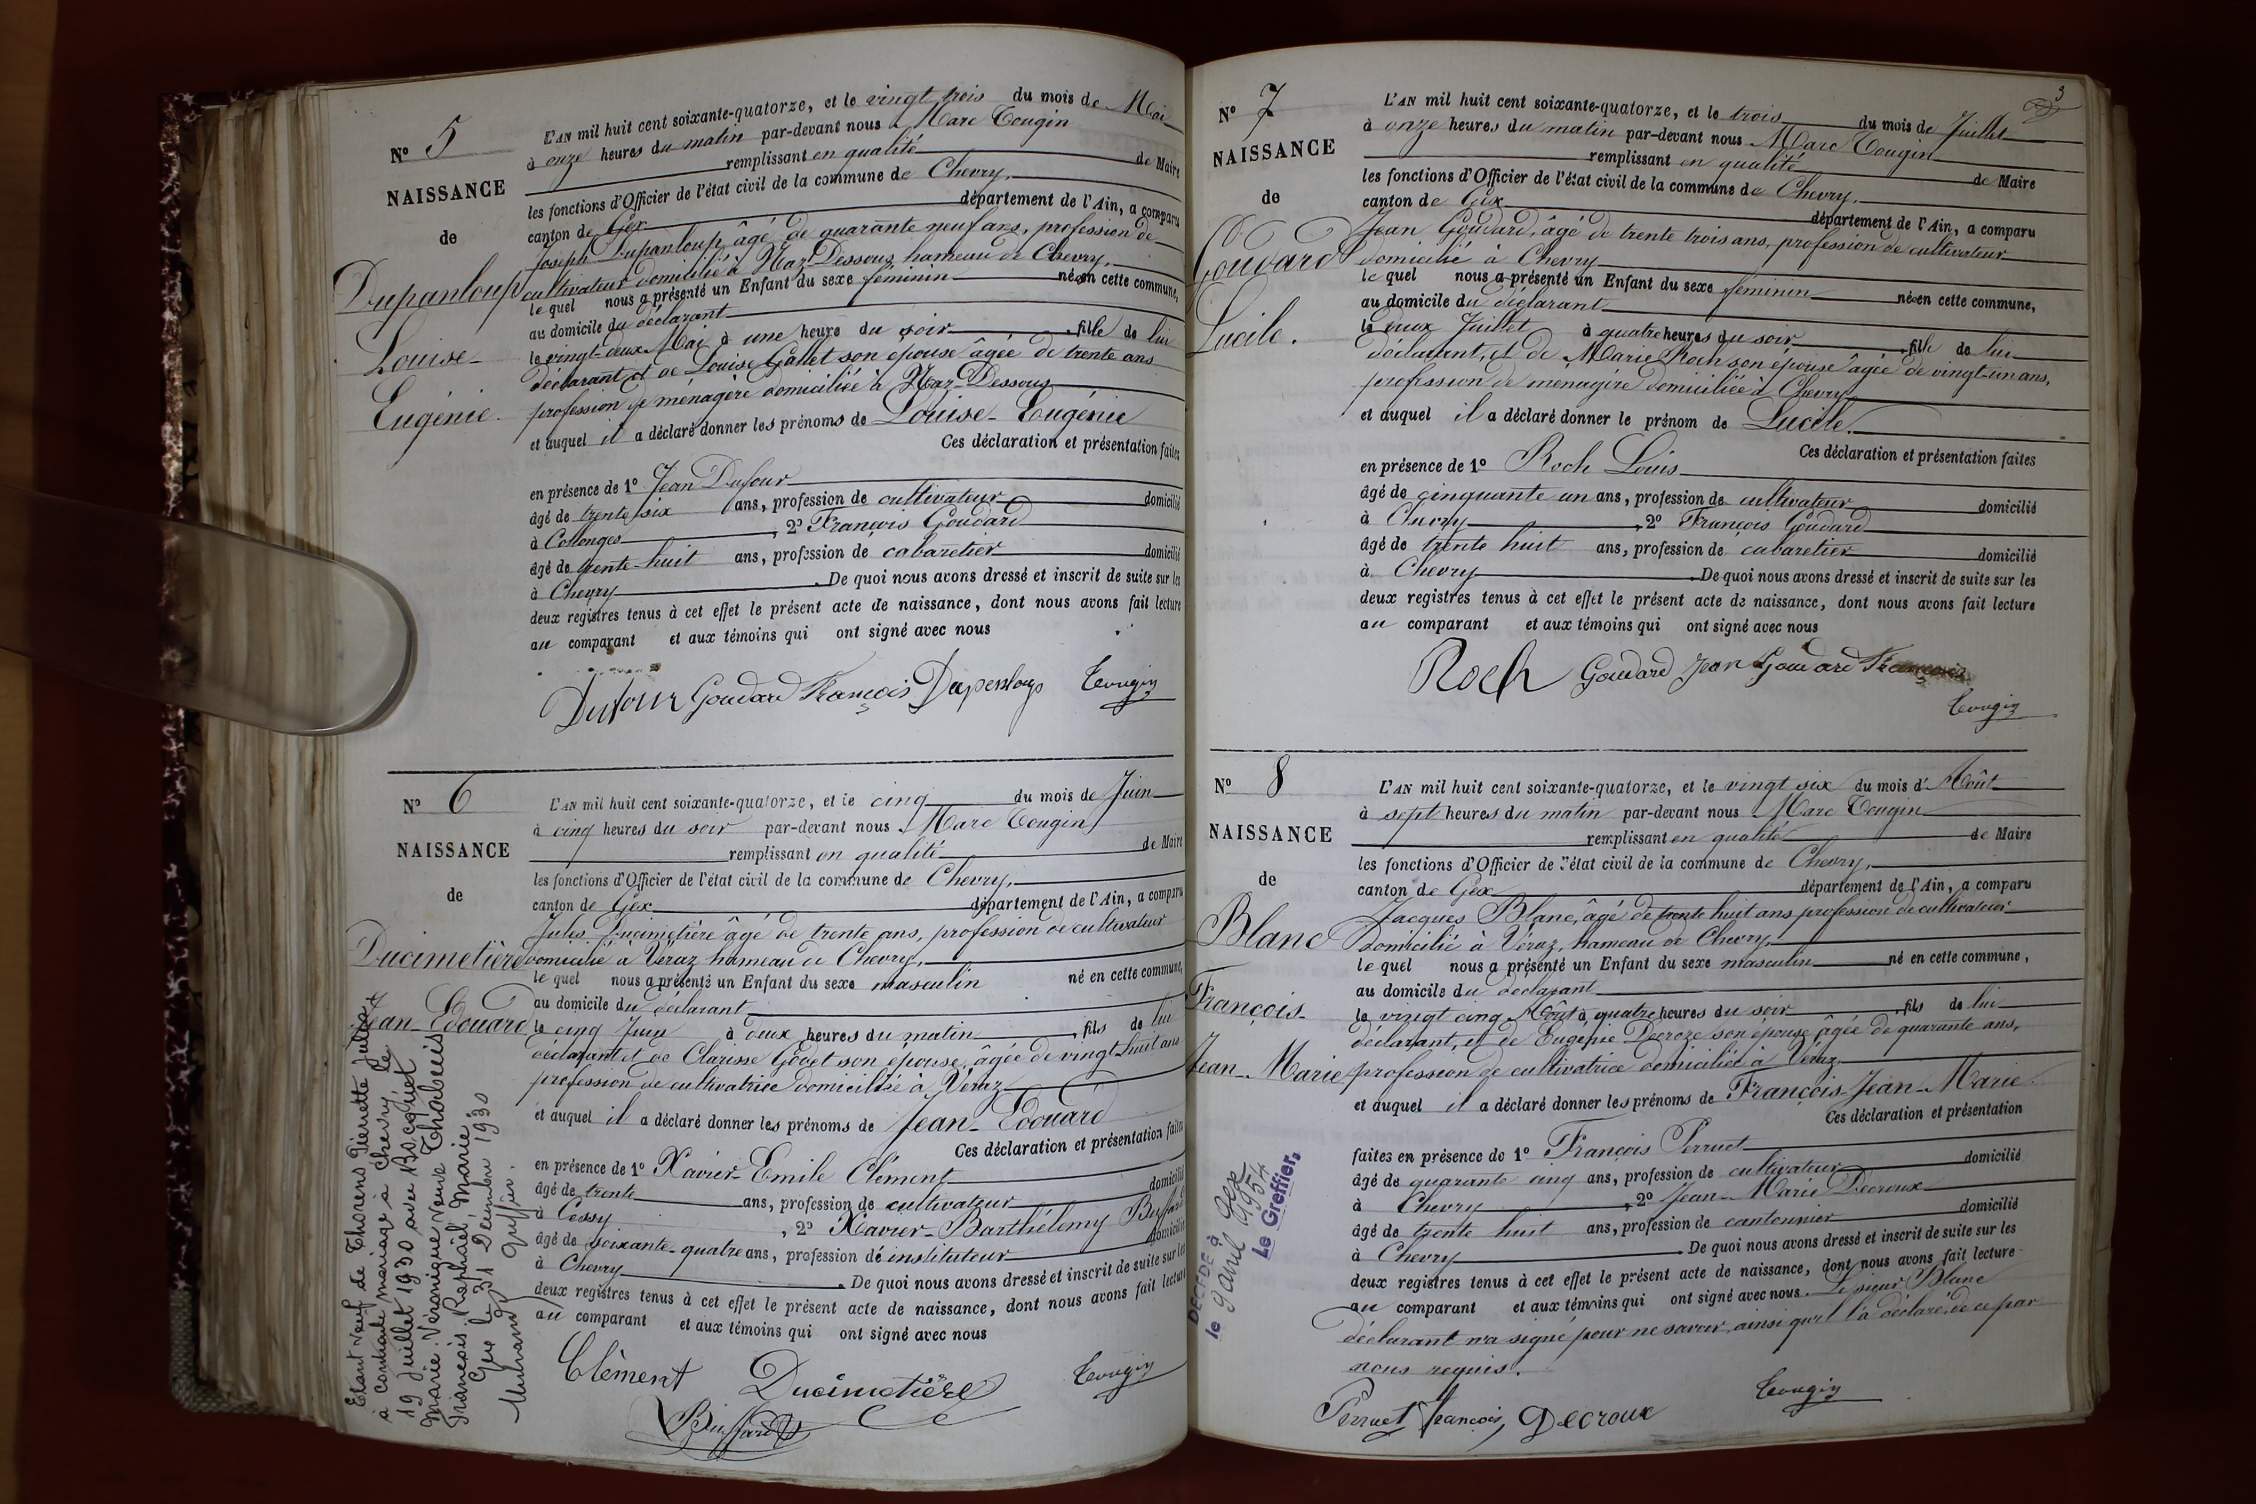 N° 5
NAISSANCE
de
Dupanloup
Louise-
Eugénie.
L'AN mil huit cent soixante-quatorze, et le vingt trois du mois de Mai
à onze heures du matin par-devant nous Marc Tougin
remplissant en qualité de Maire
les fonctions d'Officier de l'état civil de la commune de Chevry,
canton de Gex département de l'Ain, a comparu
Joseph Dupanloup, âgé de quarante neuf ans, profession de
cultivateur domicilié à Naz-Dessous hameau de Chevry,
le quel nous a présenté un Enfant du sexe féminin née en cette commune,
au domicile du déclarant
le vingt-deux Mai à une heure du soir, fille de lui
déclarant et de Louise Gallet son épouse âgée de trente ans
profession de ménagère domiciliée à Naz-Dessous
et auquel il a déclaré donner les prénoms de Louise-Eugénie
Ces déclaration et présentation faites
en présence de 1° Jean Dufour
âgé de trente six ans, profession de cultivateur domicilié
à Collonges, 2° François Goudard
âgé de trente-huit ans, profession de cabaretier domicilié
à Chevry. De quoi nous avons dressé et inscrit de suite sur les
deux registres tenus à cet effet le présent acte de naissance, dont nous avons fait lecture
au comparant et aux témoins qui ont signé avec nous
Dufour Goudard François Dupenloup Tougin
N° 6
NAISSANCE
de
Ducimetière
Jean-Edouard
L'AN mil huit cent soixante-quatorze, et le cinq du mois de Juin
à cinq heures du soir par-devant nous Marc Tougin
remplissant en qualité de Maire
les fonctions d'Officier de l'état civil de la commune de Chevry,
canton de Gex département de l'Ain, a comparu
Jules Ducimetière âgé de trente ans, profession de cultivateur
domicilié à Véraz hameau de Chevry,
le quel nous a présenté un Enfant du sexe masculin né en cette commune,
au domicile du déclarant
le cinq Juin à deux heures du matin, fils de lui
déclarant et de Clarisse Godet son épouse, âgée de vingt-huit ans
profession de cultivatrice domiciliée à Véraz
et auquel il a déclaré donner les prénoms de Jean-Edouard
Ces déclaration et présentation faites
en présence de 1° Xavier-Emile Clément
âgé de trente ans, profession de cultivateur domicilié
à Cessy, 2° Xavier-Barthélemy Buffard
âgé de soixante-quatre ans, profession de instituteur domicilié
à Chevry. De quoi nous avons dressé et inscrit de suite sur les
deux registres tenus à cet effet le présent acte de naissance, dont nous avons fait lecture
au comparant et aux témoins qui ont signé avec nous
Clément Ducimetière Tougin
Buffard
Etant veuf de Thorens Pierrette Julie
à contracté mariage à Chevry, le
19 Juillet 1930 avec Bocquet
Marie Véronique veuve Chabuis
François Raphaël Marie.
Gex le 31 Décembre 1930
Greffier.
3
N° 7
NAISSANCE
de
Goudard
Lucile.
L'AN mil huit cent soixante-quatorze, et le trois du mois de Juillet
à onze heures du matin par-devant nous Marc Tougin
remplissant en qualité de Maire
les fonctions d'Officier de l'état civil de la commune de Chevry,
canton de Gex département de l'Ain, a comparu
Jean Goudard, âgé de trente trois ans, profession de cultivateur
domicilié à Chevry
le quel nous a présenté un Enfant du sexe féminin née en cette commune,
au domicile du déclarant
le deux Juillet à quatre heures du soir, fille de lui
déclarant, et de Marie Roch son épouse âgée de vingt-un ans,
profession de ménagère domiciliée à Chevry
et auquel il a déclaré donner le prénom de Lucile.
Ces déclaration et présentation faites
en présence de 1° Roch Louis
âgé de cinquante un ans, profession de cultivateur domicilié
à Chevry, 2° François Goudard
âgé de trente huit ans, profession de cabaretier domicilié
à Chevry. De quoi nous avons dressé et inscrit de suite sur les
deux registres tenus à cet effet le présent acte de naissance, dont nous avons fait lecture
au comparant et aux témoins qui ont signé avec nous
Roch Goudard Jean Goudard François
Tougin
N° 8
NAISSANCE
de
Blanc
François-
Jean-Marie
L'AN mil huit cent soixante-quatorze, et le vingt six du mois d'Août
à sept heures du matin par-devant nous Marc Tougin
remplissant en qualité de Maire
les fonctions d'Officier de l'état civil de la commune de Chevry,
canton de Gex département de l'Ain, a comparu
Jacques Blanc, âgé de trente huit ans profession de cultivateur
domicilié à Véraz, hameau de Chevry,
le quel nous a présenté un Enfant du sexe masculin né en cette commune,
au domicile du déclarant
le vingt cinq Août à quatre heures du soir, fils de lui
déclarant, et de Eugénie Decroze son épouse, âgée de quarante ans,
profession de cultivatrice domiciliée à Véraz
et auquel il a déclaré donner les prénoms de François-Jean-Marie.
Ces déclaration et présentation
faites en présence de 1° François Perruet
âgé de quarante cinq ans, profession de cultivateur domicilié
à Chevry, 2° Jean-Marie Decroux
âgé de trente huit ans, profession de cantonnier domicilié
à Chevry. De quoi nous avons dressé et inscrit de suite sur les
deux registres tenus à cet effet le présent acte de naissance, dont nous avons fait lecture
au comparant et aux témoins qui ont signé avec nous. Le sieur Blanc
déclarant n'a signé pour ne savoir, ainsi qu'il l'a déclaré, de ce par
nous requis.
Perruet françois, Decroux Tougin
DÉCÉDÉ à Gex
le 9 avril 1954
Le Greffier,